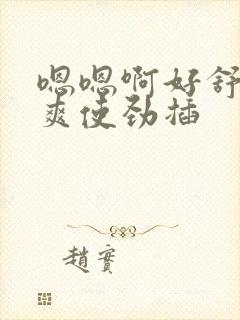 嗯嗯啊好舒
爽使劲插
趙實